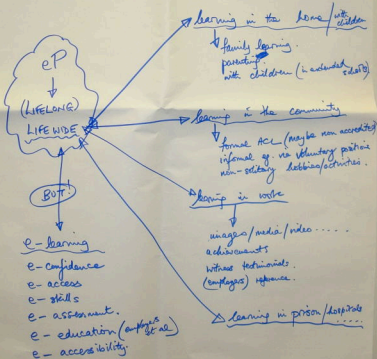 eP
(LIFELONG)
LIFEWIDE
BUT!
e-learning
e-confidence
e-access
e-skills
e-assessment.
e-education (employers et al)
e-accessibility.
learning in the home / with children
family learning.
parenting
with children (in extended schools)
learning in the community
formal ACL (maybe non accredited)
informal eg. via voluntary positions
non-solitary hobbies/activities.
learning in work
images/media/video.....
achievements
witness testimonials.
(employers) reference.
learning in prison/hospitals
.....